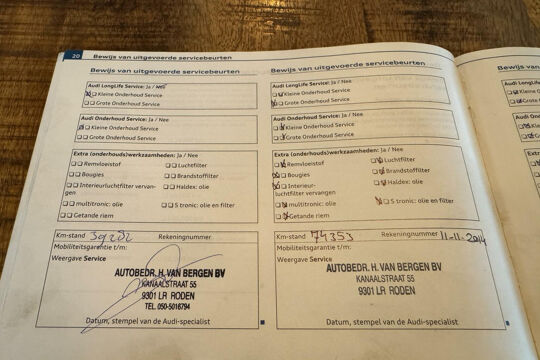 20 Bewijs van uitgevoerde servicebeurten
Bewijs van uitgevoerde servicebeurten
Audi LongLife Service: Ja / Nee
Kleine Onderhoud Service
Grote Onderhoud Service
Audi Onderhoud Service: Ja / Nee
Kleine Onderhoud Service
Grote Onderhoud Service
Extra (onderhouds)werkzaamheden: Ja / Nee
Remvloeistof
Luchtfilter
Bougies
Brandstoffilter
Interieurluchtfilter vervan-
gen
Haldex: olie
multitronic: olie
S tronic: olie en filter
Getande riem
Km-stand
Rekeningnummer
Mobiliteitsgarantie t/m:
Weergave Service
AUTOBEDR. H. VAN BERGEN BV
KANAALSTRAAT 55
9301 LR RODEN
TEL. 050-5016794
Datum, stempel van de Audi-specialist
Bewijs van uitgevoerde servicebeurten
Audi LongLife Service: Ja / Nee
Kleine Onderhoud Service
Grote Onderhoud Service
Audi Onderhoud Service: Ja / Nee
Kleine Onderhoud Service
Grote Onderhoud Service
Extra (onderhouds)werkzaamheden: Ja / Nee
Remvloeistof
Luchtfilter
Bougies
Brandstoffilter
Interieur-
luchtfilter vervangen
Haldex: olie
multitronic: olie
S tronic: olie en filter
Getande riem
Km-stand 74353 Rekeningnummer 11-11-2014
Mobiliteitsgarantie t/m:
Weergave Service
AUTOBEDR. H. VAN BERGEN BV
KANAALSTRAAT 55
9301 LR RODEN
Datum, stempel van de Audi-specialist
Bewijs van